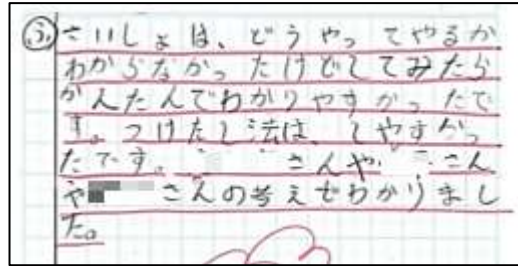 ふ さいしょは、どうやってやるか
わからなかったけどしてみたら
かんたんでわかりやすかったで
す。つけたし法は、しやすかっ
たです。 さんや、 さん
や さんの考えもわかりまし
た。